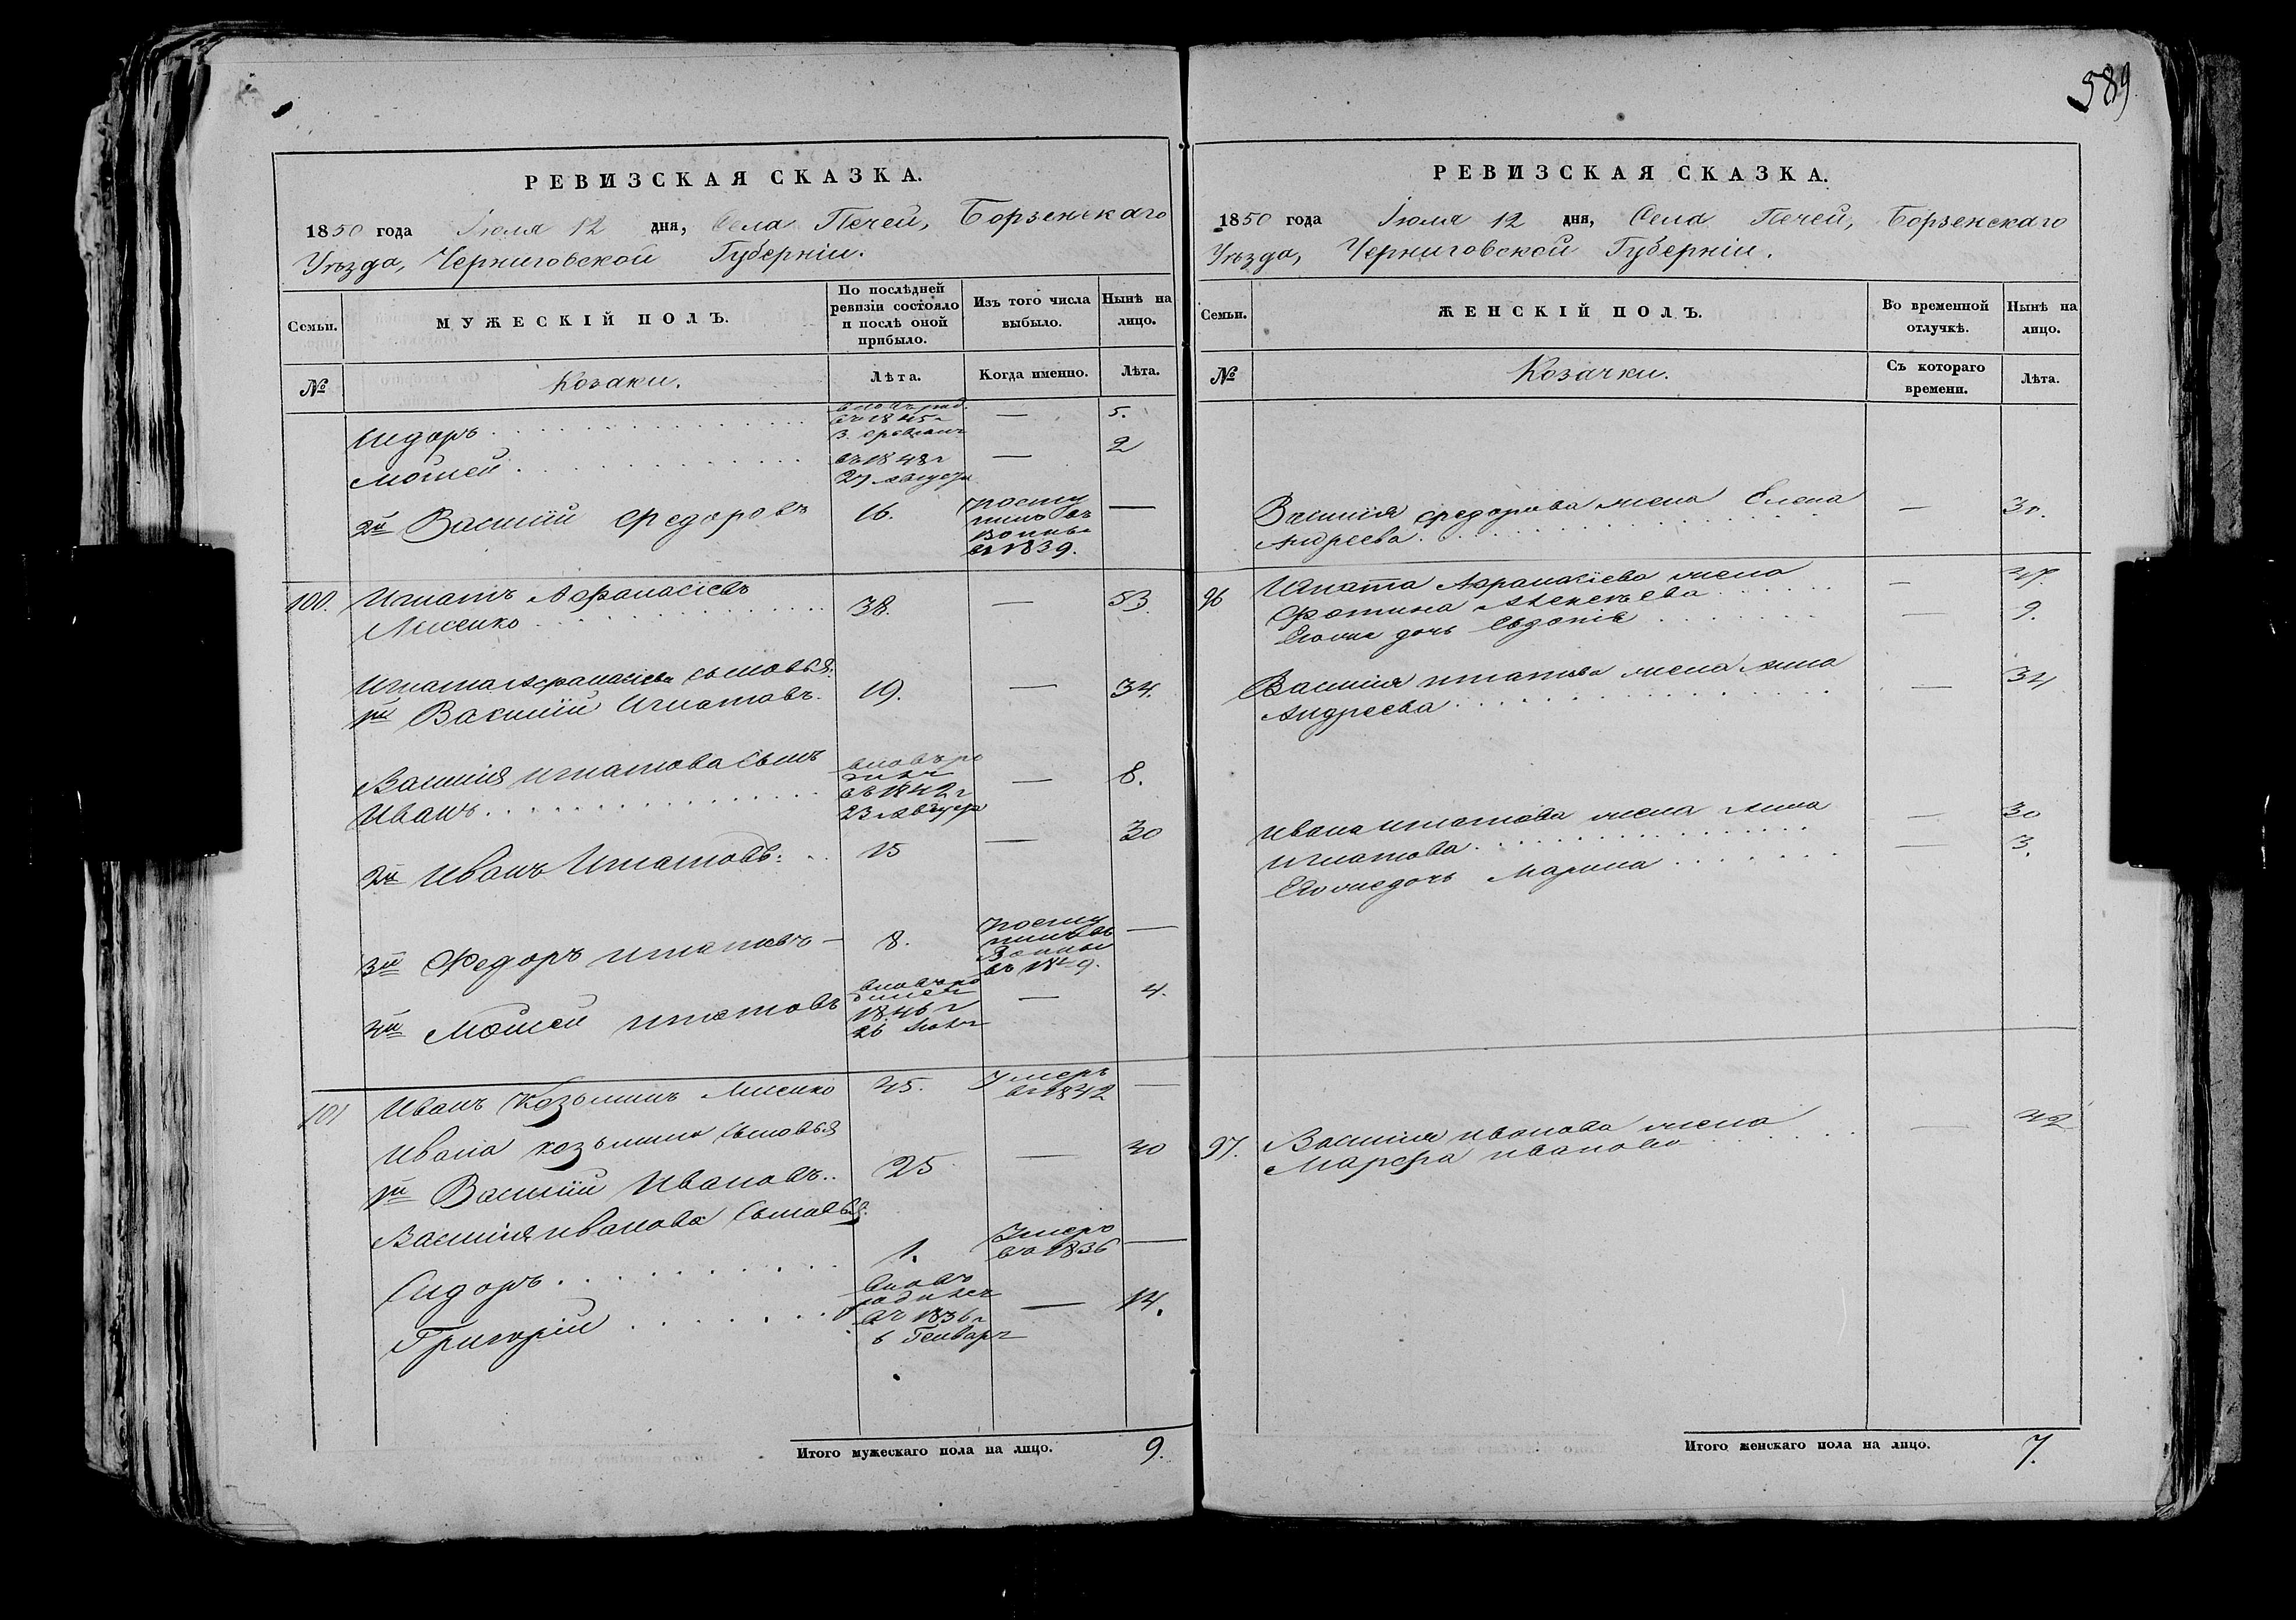 589
РЕВИЗСКАЯ СКАЗКА.
1850 года Іюля 12 дня, Села Печей, Борзенскаго
Уѣзда, Черниговской Губерніи.
Семьи.
МУЖЕСКІЙ ПОЛЪ.
По послѣдней
ревизіи состояло
и послѣ оной
прибыло.
Изъ того числа
выбыло.
Нынѣ на
лицо.
№
Козаки.
Лѣта.
Когда именно.
Лѣта.
Сидоръ
въ 1845
— 5.
Мойсей
въ 1848 г
27 Августа
— 2
2й Василій Федоровъ 16.
посту
пилъ въ
въ 1839.
—
100. Игнатъ Афанасіевъ
Лисенко 38. — 53.
Игната Афанасіева сыновья:
1й Василій Игнатовъ. 19. — 34.
Василія Игнатова сынъ
Иванъ
вновь ро
въ 1842 г
23 Августа
— 8.
2й Иванъ Игнатовъ: 15 — 30
3й Федоръ Игнатовъ — 8.
посту
пилъ въ
—
4й Мойсей Игнатовъ
1846 г
26
— 4.
101 Иванъ Козьминъ Лисенко 45. Умеръ
въ 1842 —
Ивана Козьмина сыновья
1й Василій Ивановъ.. 25 — 40
Василія Иванова сыновья:
Сидоръ 1. Умеръ
въ 1836 —
Григорій
вновь
родился
въ 1836 г
6 Генваря
— 14.
Итого мужескаго пола на лицо. 9.
РЕВИЗСКАЯ СКАЗКА.
1850 года Іюля 12 дня, Села Печей, Борзенскаго
Уѣзда, Черниговской Губерніи.
Семьи.
ЖЕНСКІЙ ПОЛЪ.
Во временной
отлучкѣ.
Нынѣ на
лицо.
№
Козачки.
Съ котораго
времени.
Лѣта.
Василія Федорова жена Елена
Андреева —
96 Игната Афанасіева жена
Фотина Алексѣева — 47.
Егоже дочь Евдокія — 9.
Василія Игнатова жена Анна
Андреева — 34
Ивана Игнатова жена Анна
Игнатова — 30
Егоже дочь Марина — 3.
97. Василія Иванова жена
Марфа Иванова — 42
Итого женскаго пола на лицо. 7.